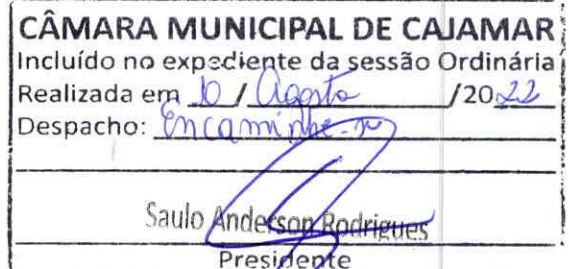 CÂMARA MUNICIPAL DE CAJAMAR
Incluído no expediente da sessão Ordinária
Realizada em 10 / Agosto /2022
Despacho: Encaminhe-se
Saulo Anderson Rodrigues
Presidente